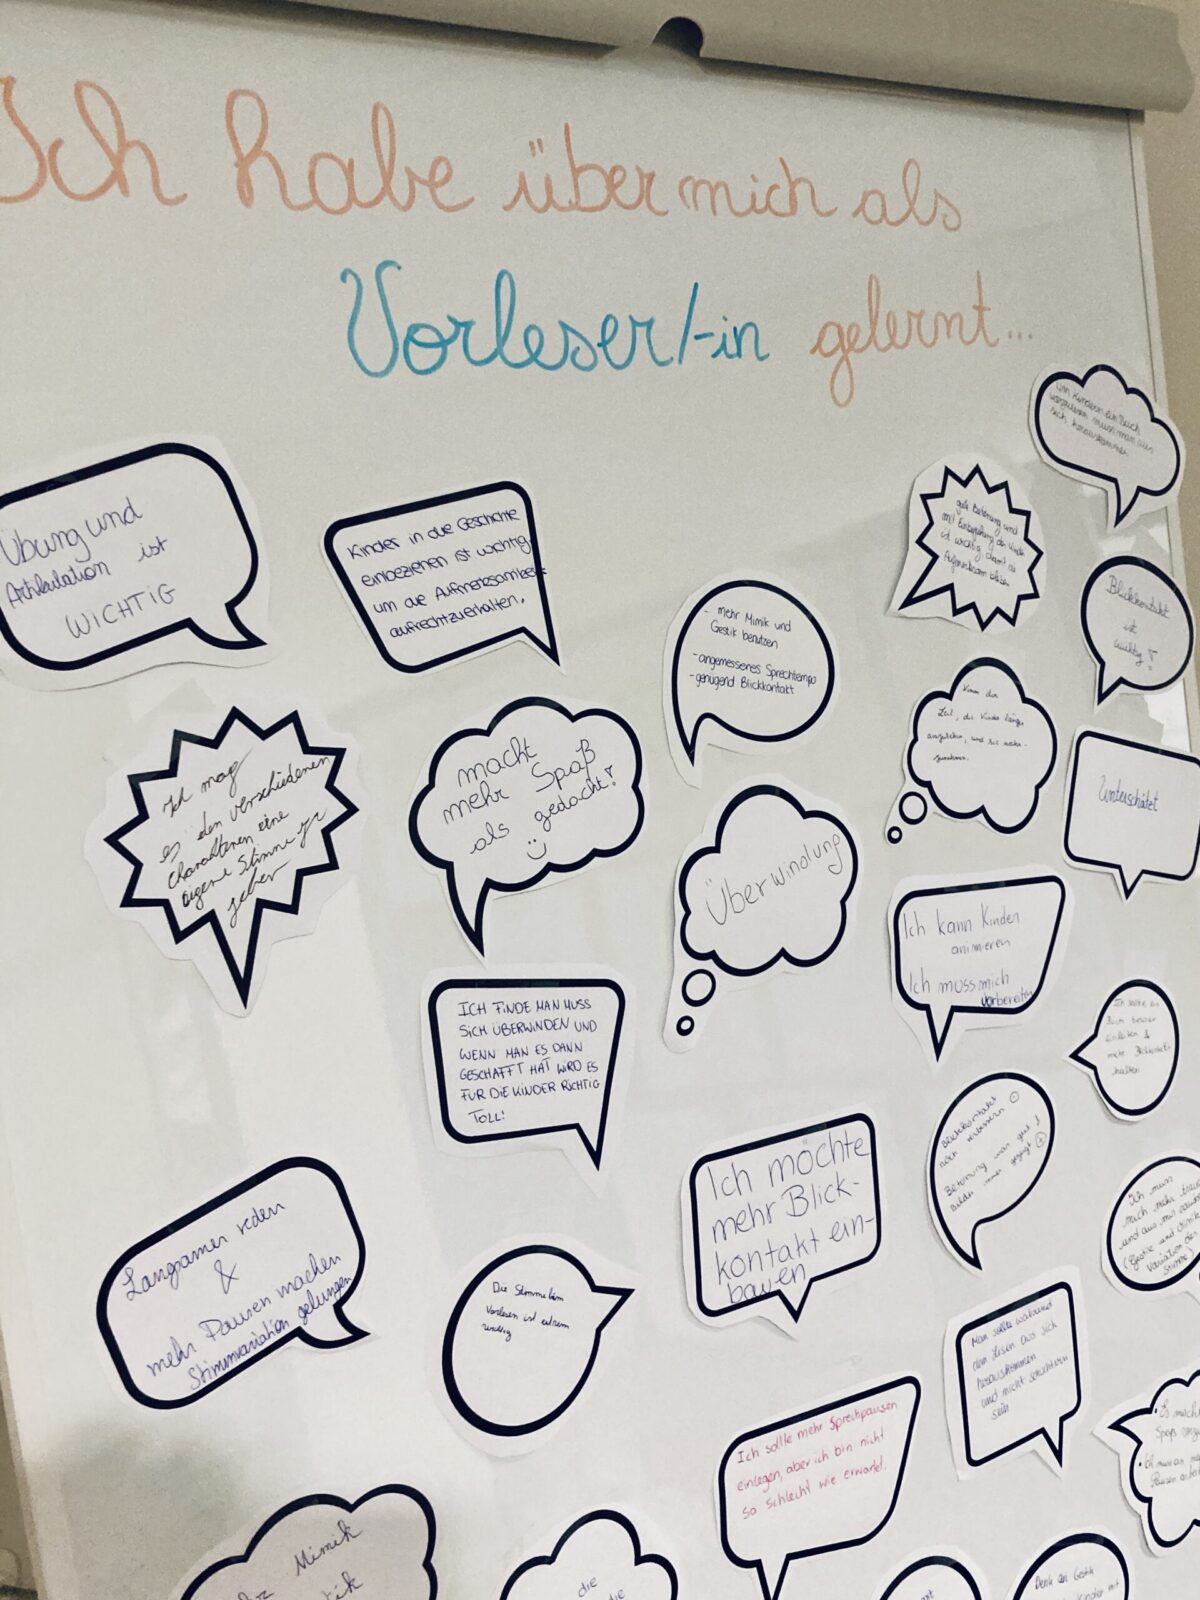 Ich habe über mich als
Vorleser/-in gelernt...
Übung und
Artikulation ist
WICHTIG
Kinder in die Geschichte
einbeziehen ist wichtig
um die Aufmerksamkeit
aufrechtzuerhalten.
- mehr Mimik und
Gestik benutzen
- angemessenes Sprechtempo
- genügend Blickkontakt
gute Betonung und
mit Einbeziehung der Kinder
ist wichtig damit sie
Aufmerksam bleiben
um Kindern ein Buch
vorzulesen muss man aus
sich herauskommen
Blickkontakt
ist
wichtig!
Ich mag
es den verschiedenen
Charakteren eine
eigene Stimme zu
geben
macht
mehr Spaß
als gedacht!
Überwindung
Zeit, die Kinder länger
anzusehen, und sie wahr-
zunehmen.
Unterschätzt
Ich kann Kinder
animieren
Ich muss mich
vorbereiten
ICH FINDE MAN MUSS
SICH ÜBERWINDEN UND
WENN MAN ES DANN
GESCHAFFT HAT WIRD ES
FÜR DIE KINDER RICHTIG
TOLL!
Ich sollte ein
Buch besser
einleiten &
mehr Blickkontakt
halten
Blickkontakt
noch verbessern
Betonung war gut!
Bilder immer gezeigt
Ich möchte
mehr Blick-
kontakt ein-
bauen
Ich muss
mich mehr trauen
und aus mir
(Gestik und Mimik
Variation der
Stimme)
Langsamer reden
&
mehr Pausen machen
Stimmvariation gelungen
Die Stimme beim
Vorlesen ist extrem
wichtig
Man sollte während
dem Lesen aus sich
herauskommen
und nicht schüchtern
sein
Ich sollte mehr Sprechpausen
einlegen, aber ich bin nicht
so schlecht wie erwartet.
• Es macht
Spaß
Pausen
Mimik
die
die
Denk an Gestik
Kinder mit